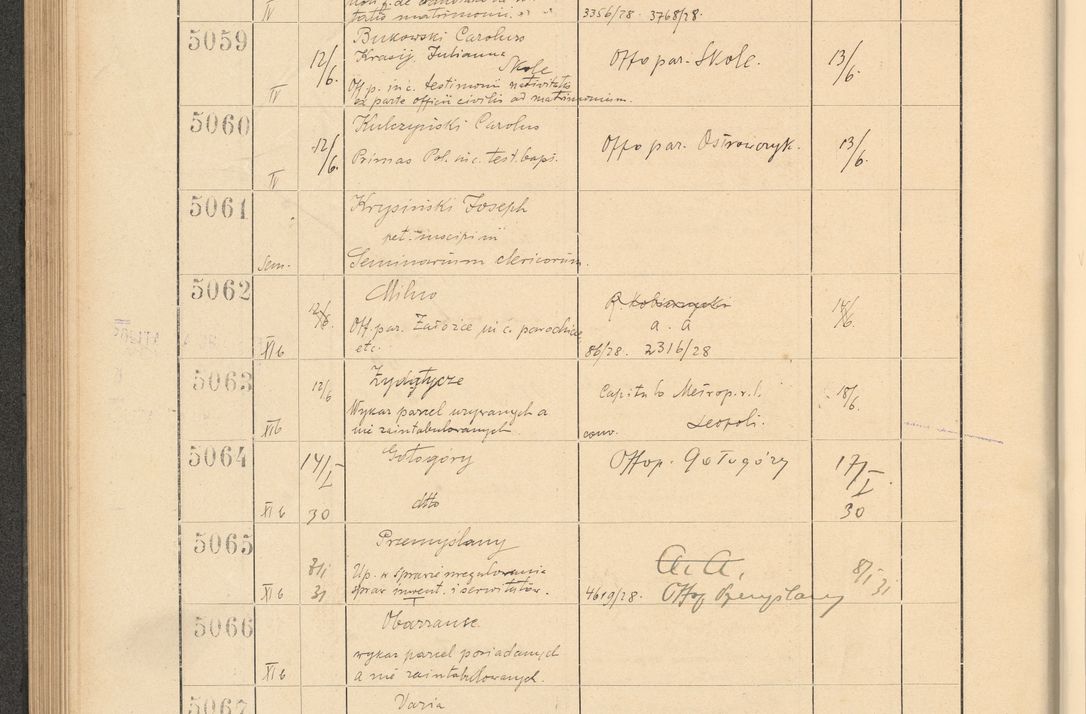 IV
tatis matrimonii.
3356/28. 3768/28.
5059
IV
12/6.
Bukowski Carolus
Krasij Julianna
Skole
Off. p. in c. testimonii nativitatis
ex parte officii civilis ad matrimonium.
Offo par. Skole.
13/6.
5060
IV
12/6.
Kulczyński Carolus
Primas Pol. in c. test. bapt.
Offo par. Ostrowczyk.
13/6.
5061
Sem.
Krysiński Joseph
pet.
Seminarium clericorum.
5062
XI b
12/6.
Milno
Off. par. Załoźce in c. parochiae
etc.
a. a
86/28. 2316/28
14/6.
5063
XI b
12/6
Żydatycze
Wykaz parcel używanych a
nie zaintabulowanych.
Capitulo Metrop. r. l.
Leopoli.
conv.
18/6.
5064
XI b
14/I
30
Gołogóry
dtto
Offop. Gołogóry
17/I
30
5065
XI b
8/I
31
Przemyślany
Up. w sprawie uregulowania
spraw inwent. i serwitutów.
a. a.
4619/28. Offop Przemyślany
8/I 31
5066
XI b
Obarzańce
wykaz parcel posiadanych
a nie zaintabulowanych.
5067
Varia